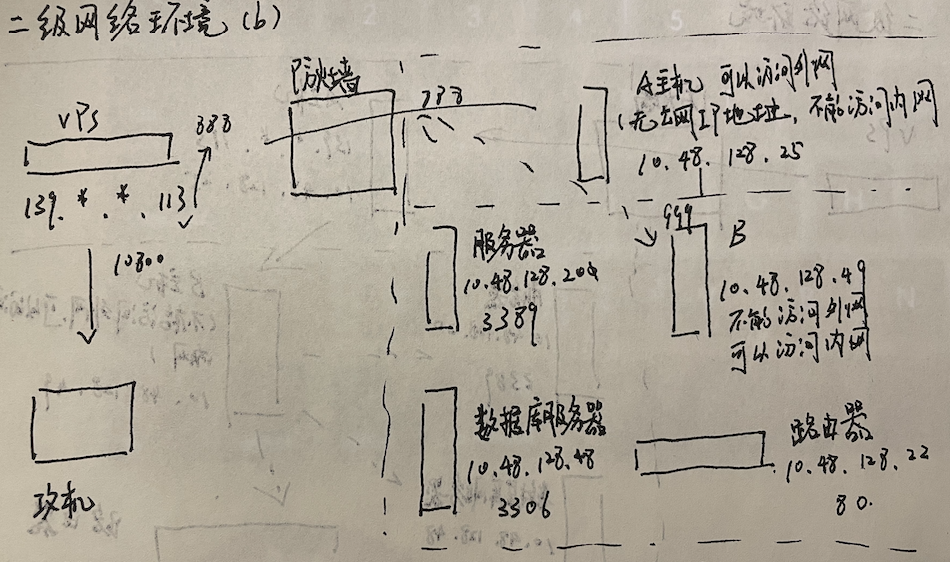 二级网络环境 (b)
防火墙
VPS
888
139. * . * . 113
10800
攻机
788
A主机 可以访问外网
(无公网IP地址, 不能访问内网
10. 48. 128. 25
服务器
10.48.128.204
3389
999
B
10. 48. 128. 49
不能访问外网
可以访问内网
数据库服务器
10.48.128.48
3306
路由器
10. 48. 128. 22
80.